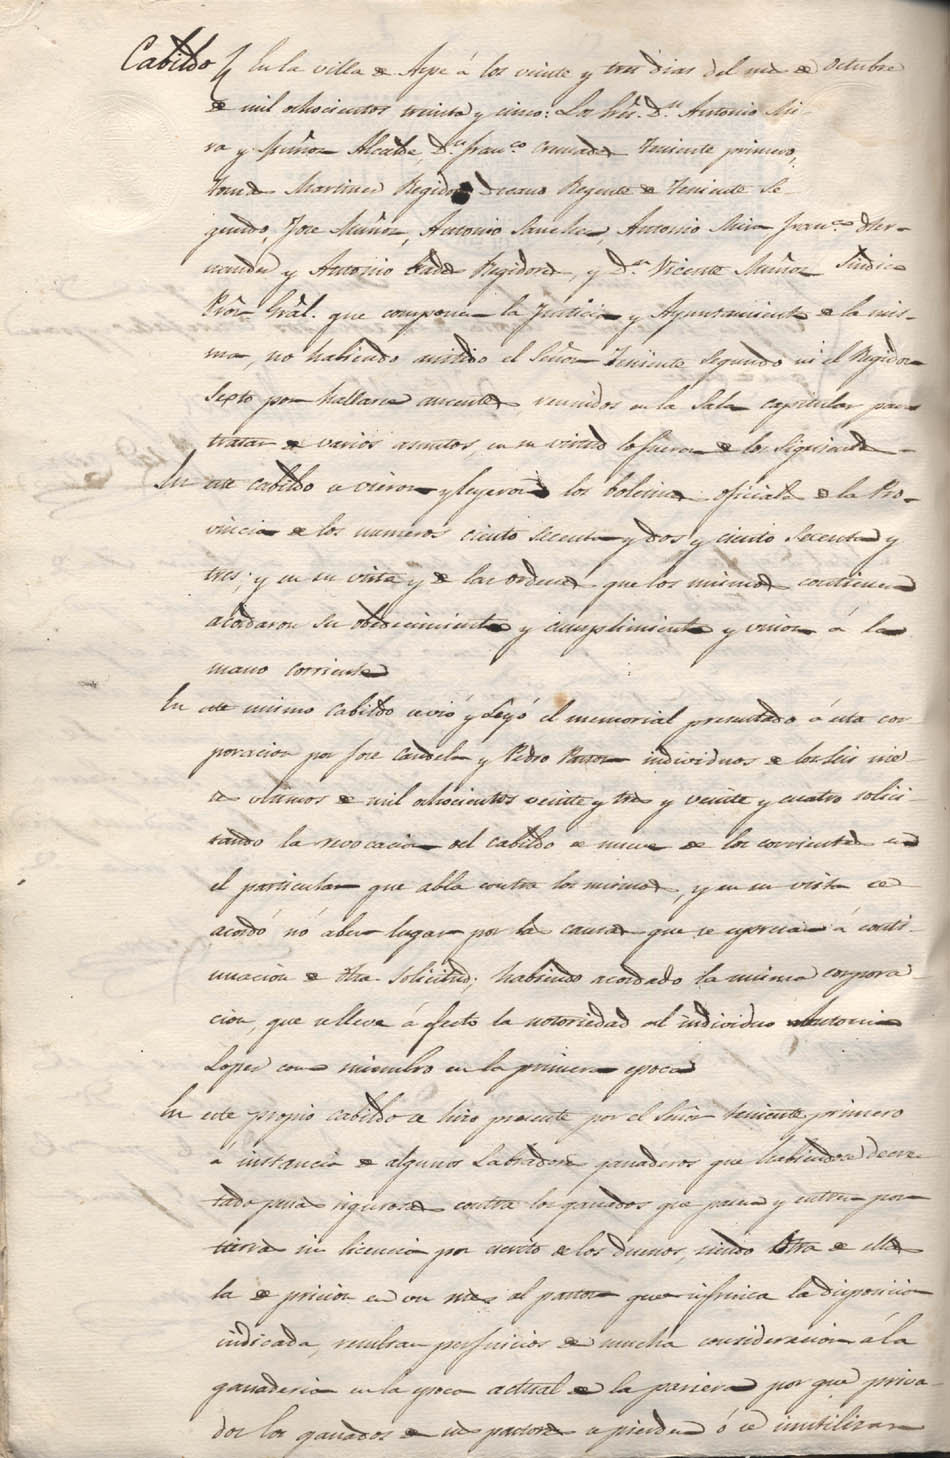 Cabildo En la villa de Aspe á los veinte y tres dias del mes de Octubre
de mil ochocientos treinta y cinco: Los Srs. Dn. Antonio Mi-
ra y Muñoz Alcalde, Dn. Franco. Cremades Teniente primero,
Tomas Martinez Regidor decano Regente de Teniente Se-
gundo, Jose Muñoz, Antonio Sanchez, Antonio Mira Franco. Her-
nandez y Antonio Regidores, y Dn. Vicente Muñoz Sindico
Pror. Gral. que componen la Justicia y Ayuntamiento de la mis-
ma, no habiendo asistido el Señor Teniente Segundo ni el Regidor
Sexto por hallarse ausentes, reunidos en la Sala capitular para
tratar de varios asuntos, en su virtud lo fueron de los siguientes
En este cabildo se vieron y leyeron los boletines oficiales de la Pro-
vincia de los numeros ciento sesenta y dos y ciento sesenta y
tres; y en su vista y de las ordenes que los mismos contienen
acordaron su obedecimiento y cumplimiento y union á la
mano corriente
En este mismo Cabildo se vió y Leyó el memorial presentado á esta cor
poracion por Jose Candela y Pedro Pastor individuos de los seis me-
ses ultimos de mil ochocientos veinte y tres y veinte y cuatro solici-
tando la revocacion del cabildo de nueve de los corrientes en
el particular que abla contra los mismos, y en su vista se
acordó nó aber lugar por las causas que se espresan á conti-
nuacion de dha. solicitud; habiendo acordado la misma corpora
cion, que se lleve á efecto la notoriedad al individuo Antonio
Lopez como miembro en la primera epoca
En este propio cabildo se hizo presente por el Señor teniente primero
á instancia de algunos Labradores ganaderos que habiendose decre-
tado penas rigurosas contra los ganados que pasen y entren por
tierras sin licencia por escrito de los dueños, siendo otra de ellas
la de prision de un mes al pastor que infrinja la disposicion
indicada, resultan perjuicios de mucha consideracion á la
ganaderia en la epoca actual de la pariera por que priva-
dos los ganados de sus pastores se pierden ó se inutilizan